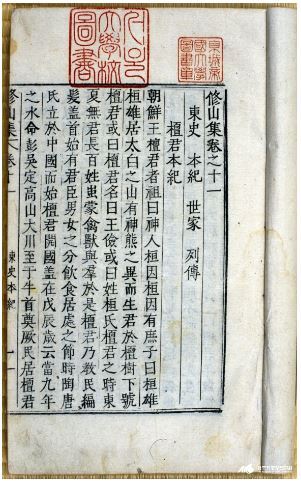 서울大學校圖書
京城帝國大學圖書章
修山集卷之十一
東史 本紀 世家 列傳
檀君本紀
朝鮮王檀君者祖曰神人桓因桓因有庶子曰桓雄
桓雄居太白之山有神熊之異而生君於檀樹下號
檀君或曰檀君名曰王儉或曰姓桓氏檀君之時東
夏無君長百姓蚩蒙禽獸與羣於是檀君乃敎民編
髮盖首始有君臣男女之分飲食居處之節時陶唐
氏立於中國而始檀君開國盖在戊辰歲云當九年
之水命彭吳定高山大川至于牛首奠厥民居檀君
修山集 卷十一 東史本紀 一